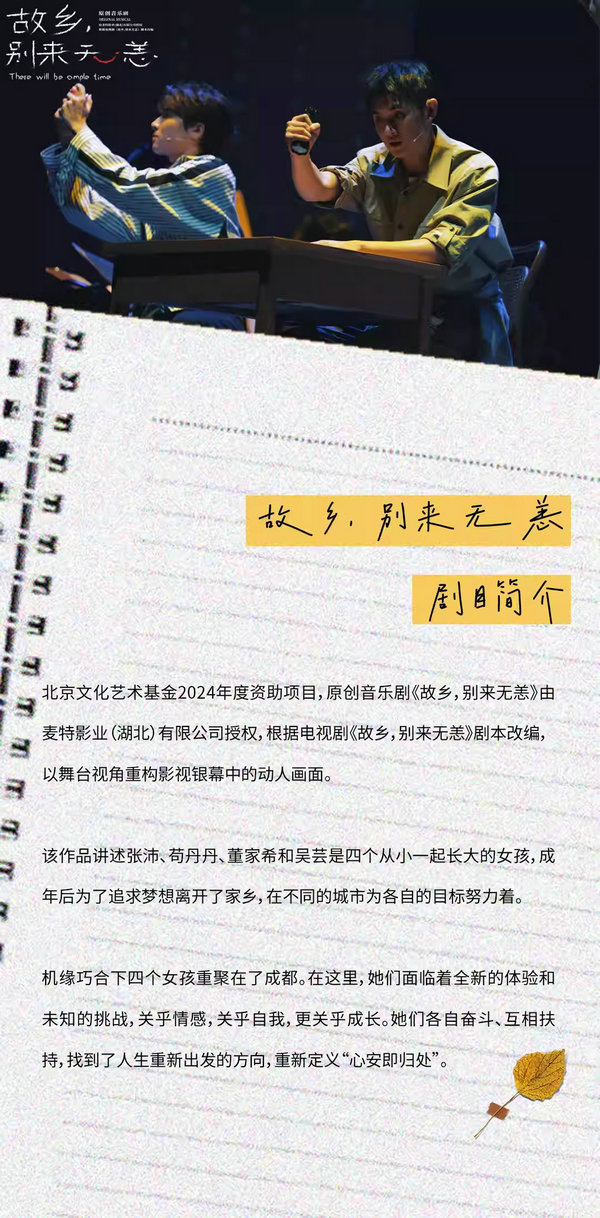 故乡，
别来无恙
原创音乐剧
ORIGINAL MUSICAL
There will be ample time
故乡，别来无恙
剧目简介
北京文化艺术基金2024年度资助项目，原创音乐剧《故乡，别来无恙》由
麦特影业（湖北）有限公司授权，根据电视剧《故乡，别来无恙》剧本改编，
以舞台视角重构影视银幕中的动人画面。
该作品讲述张沛、苟丹丹、董家希和吴芸是四个从小一起长大的女孩，成
年后为了追求梦想离开了家乡，在不同的城市为各自的目标努力着。
机缘巧合下四个女孩重聚在了成都。在这里，她们面临着全新的体验和
未知的挑战，关乎情感，关乎自我，更关乎成长。她们各自奋斗、互相扶
持，找到了人生重新出发的方向，重新定义“心安即归处”。